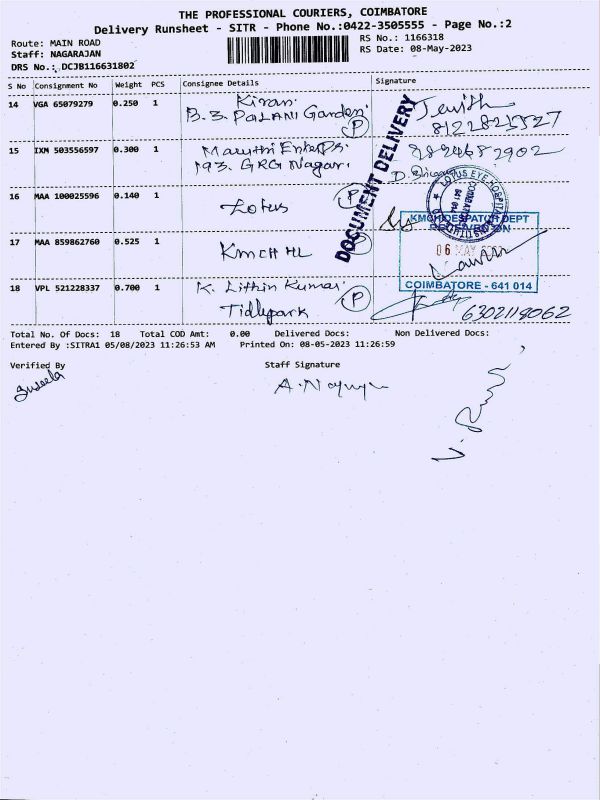 THE PROFESSIONAL COURIERS, COIMBATORE
Delivery Runsheet - SITR - Phone No.:0422-3505555 - Page No.:2
Route: MAIN ROAD
RS No.: 1166318
Staff: NAGARAJAN
RS Date: 08-May-2023
DRS No.: DCJB116631802
S No Consignment No Weight PCS Consignee Details Signature
14 VGA 65079279 0.250 1 Kiran
B.3 PALANI Garden P
15 IXM 503556597 0.300 1 Maruthi EnterPs
193. GRG Nagar.
16 MAA 100025596 0.140 1 Lotus P
17 MAA 859862760 0.525 1 KMCH HL
18 VPL 521228337 0.700 1 K. Lithin Kumar P
Tidlepark
6302119062
DOCUMENT DELIVERY
LOTUS EYE HOSPITAL
COIMBATORE
641 014
KMCH DESPATCH DEPT
06 MAY
COIMBATORE - 641 014
Total No. Of Docs: 18 Total COD Amt: 0.00 Delivered Docs: Non Delivered Docs:
Entered By :SITRA1 05/08/2023 11:26:53 AM Printed On: 08-05-2023 11:26:59
Verified By Staff Signature